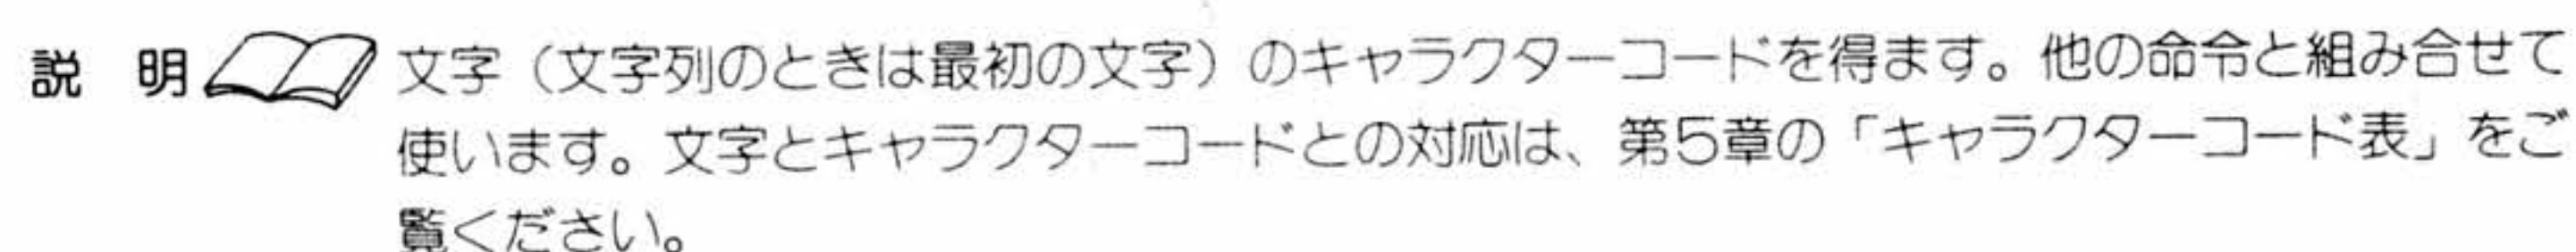 説 明 文字（文字列のときは最初の文字）のキャラクターコードを得ます。他の命令と組み合せて
使います。文字とキャラクターコードとの対応は、第5章の「キャラクターコード表」をご
覧ください。